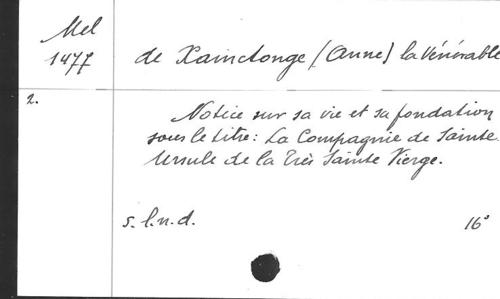 Mel
1477
de Xainctonge (Anne) la Vénérable
2.
Notice sur sa vie et sa fondation
sous le titre: La Compagnie de Sainte
Ursule de la Très Sainte Vierge.
s. l. n. d.
16°